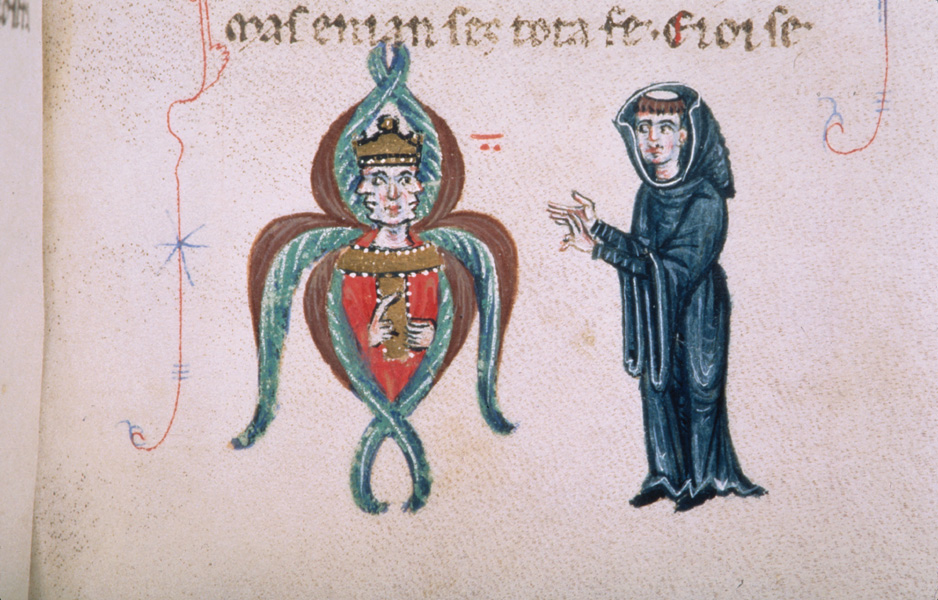 Mas enian ses tota fe. Eroi se